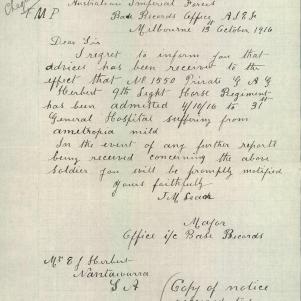 Australian Imperial Force
M P
Base Records Office A.I.F.
Melbourne 13 October 1916
Dear Sir
I regret to inform you that
advices has been received to the
effect that No 1550 Private G A G
Herbert 9th Light Horse Regiment
has been admitted 4/10/16 to 31st
General Hospital suffering from
ametropia mild
In the event of any further reports
being received concerning the above
Soldier you will be promptly notified
Yours faithfully
J M Lean
Major
Office i/c Base Records
Mr E J Herbert
Nantawarra
S A
(Copy of notice